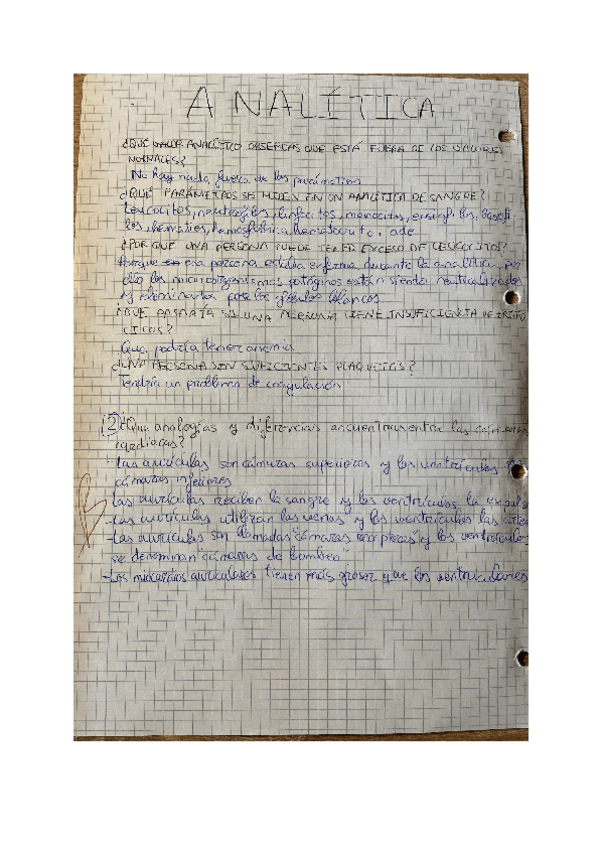 ANALÍTICA
¿QUÉ VALOR ANALÍTICO OBSERVAS QUE ESTÁ FUERA DE LOS VALORES
NORMALES?
No hay nada fuera de los parámetros
¿QUÉ PARÁMETROS SE MIDEN EN UN ANALÍTICA DE SANGRE?
Leucocitos, neutrófilos, linfocitos, monocitos, eosinófilos, basófi
los, hematíes, hemoglobina, hematocrito, ade
¿POR QUÉ UNA PERSONA PUEDE TENER EXCESO DE LEUCOCITOS?
Porque esa persona estaba enferma durante la analítica, por
ello los microorganismos patógenos están siendo neutralizados
y eliminados por los glóbulos blancos
¿QUÉ PASARÍA SI UNA PERSONA TIENE INSUFICIENCIA DE ERITRO
CITOS?
Que podría tener anemia
¿UNA PERSONA SIN SUFICIENTES PLAQUETAS?
Tendría un problema de coagulación
2 ¿Qué analogías y diferencias encuentras entre las
cardiacas?
-Las aurículas son cámaras superiores y los ventrículos
cámaras inferiores
-Las aurículas reciben la sangre y los ventrículos la expulsa
-Las aurículas utilizan las venas y los ventrículos las arteri
-Las aurículas son llamadas "cámaras receptoras" y los ventrículo
se denominan "cámaras de bombeo"
-Los miocardios auriculares tienen más grosor que los ventriculares